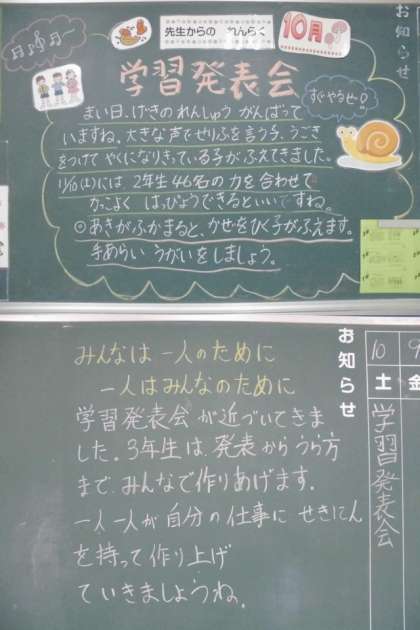 お知らせ
先生からの れんらく
10月
学習発表会
すごいやるせー!
まい日、げきのれんしゅう がんばって
いますね。大きな声でせりふを言う子、うごき
をつけて やくになりきっている子がふえてきました。
11/10(土)には、2年生46名の力を合わせて
かっこよく はっぴょうできるといいですね。
◎あきがふかまると、かぜをひく子がふえます。
手あらい うがいをしましょう。
お知らせ
みんなは 一人のために
一人はみんなのために
学習発表会が近づいてきま
した。3年生は、発表からうら方
まで、みんなで作りあげます。
一人一人が自分の仕事に せきにん
を持って作り上げ
ていきましょうね。
10
土
学習発表会
9
金